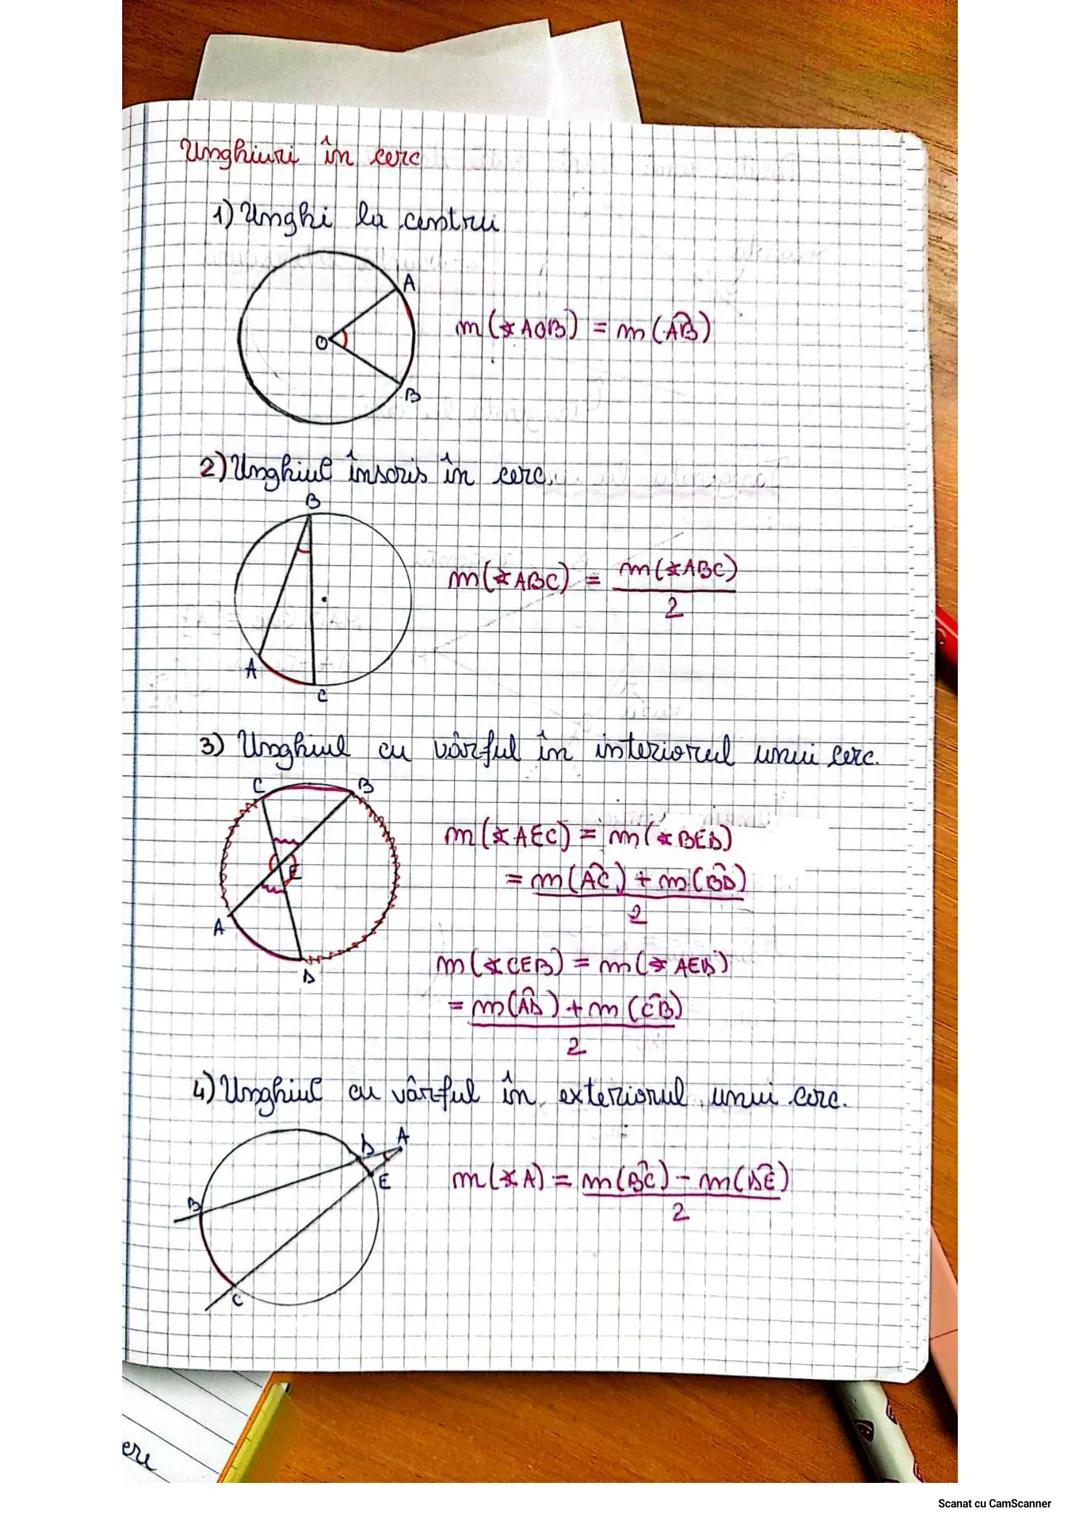 Unghiuri în cerc
1) Unghi la centru
A
O
B
m(∢AOB) = m(A͡B)
2) Unghiul înscris în cerc.
B
A
C
m(∢ABC) = m(∢ABC)
2
3) Unghiul cu vârful în interiorul unui cerc.
C
B
E
A
D
m(∢AEC) = m(∢BED)
= m(A͡C) + m(B͡D)
2
m(∢CEB) = m(∢AED)
= m(A͡D) + m(C͡B)
2
4) Unghiul cu vârful în exteriorul unui cerc.
D
A
E
B
C
m(∢A) = m(B͡C) - m(D͡E)
2
ere
Scanat cu CamScanner